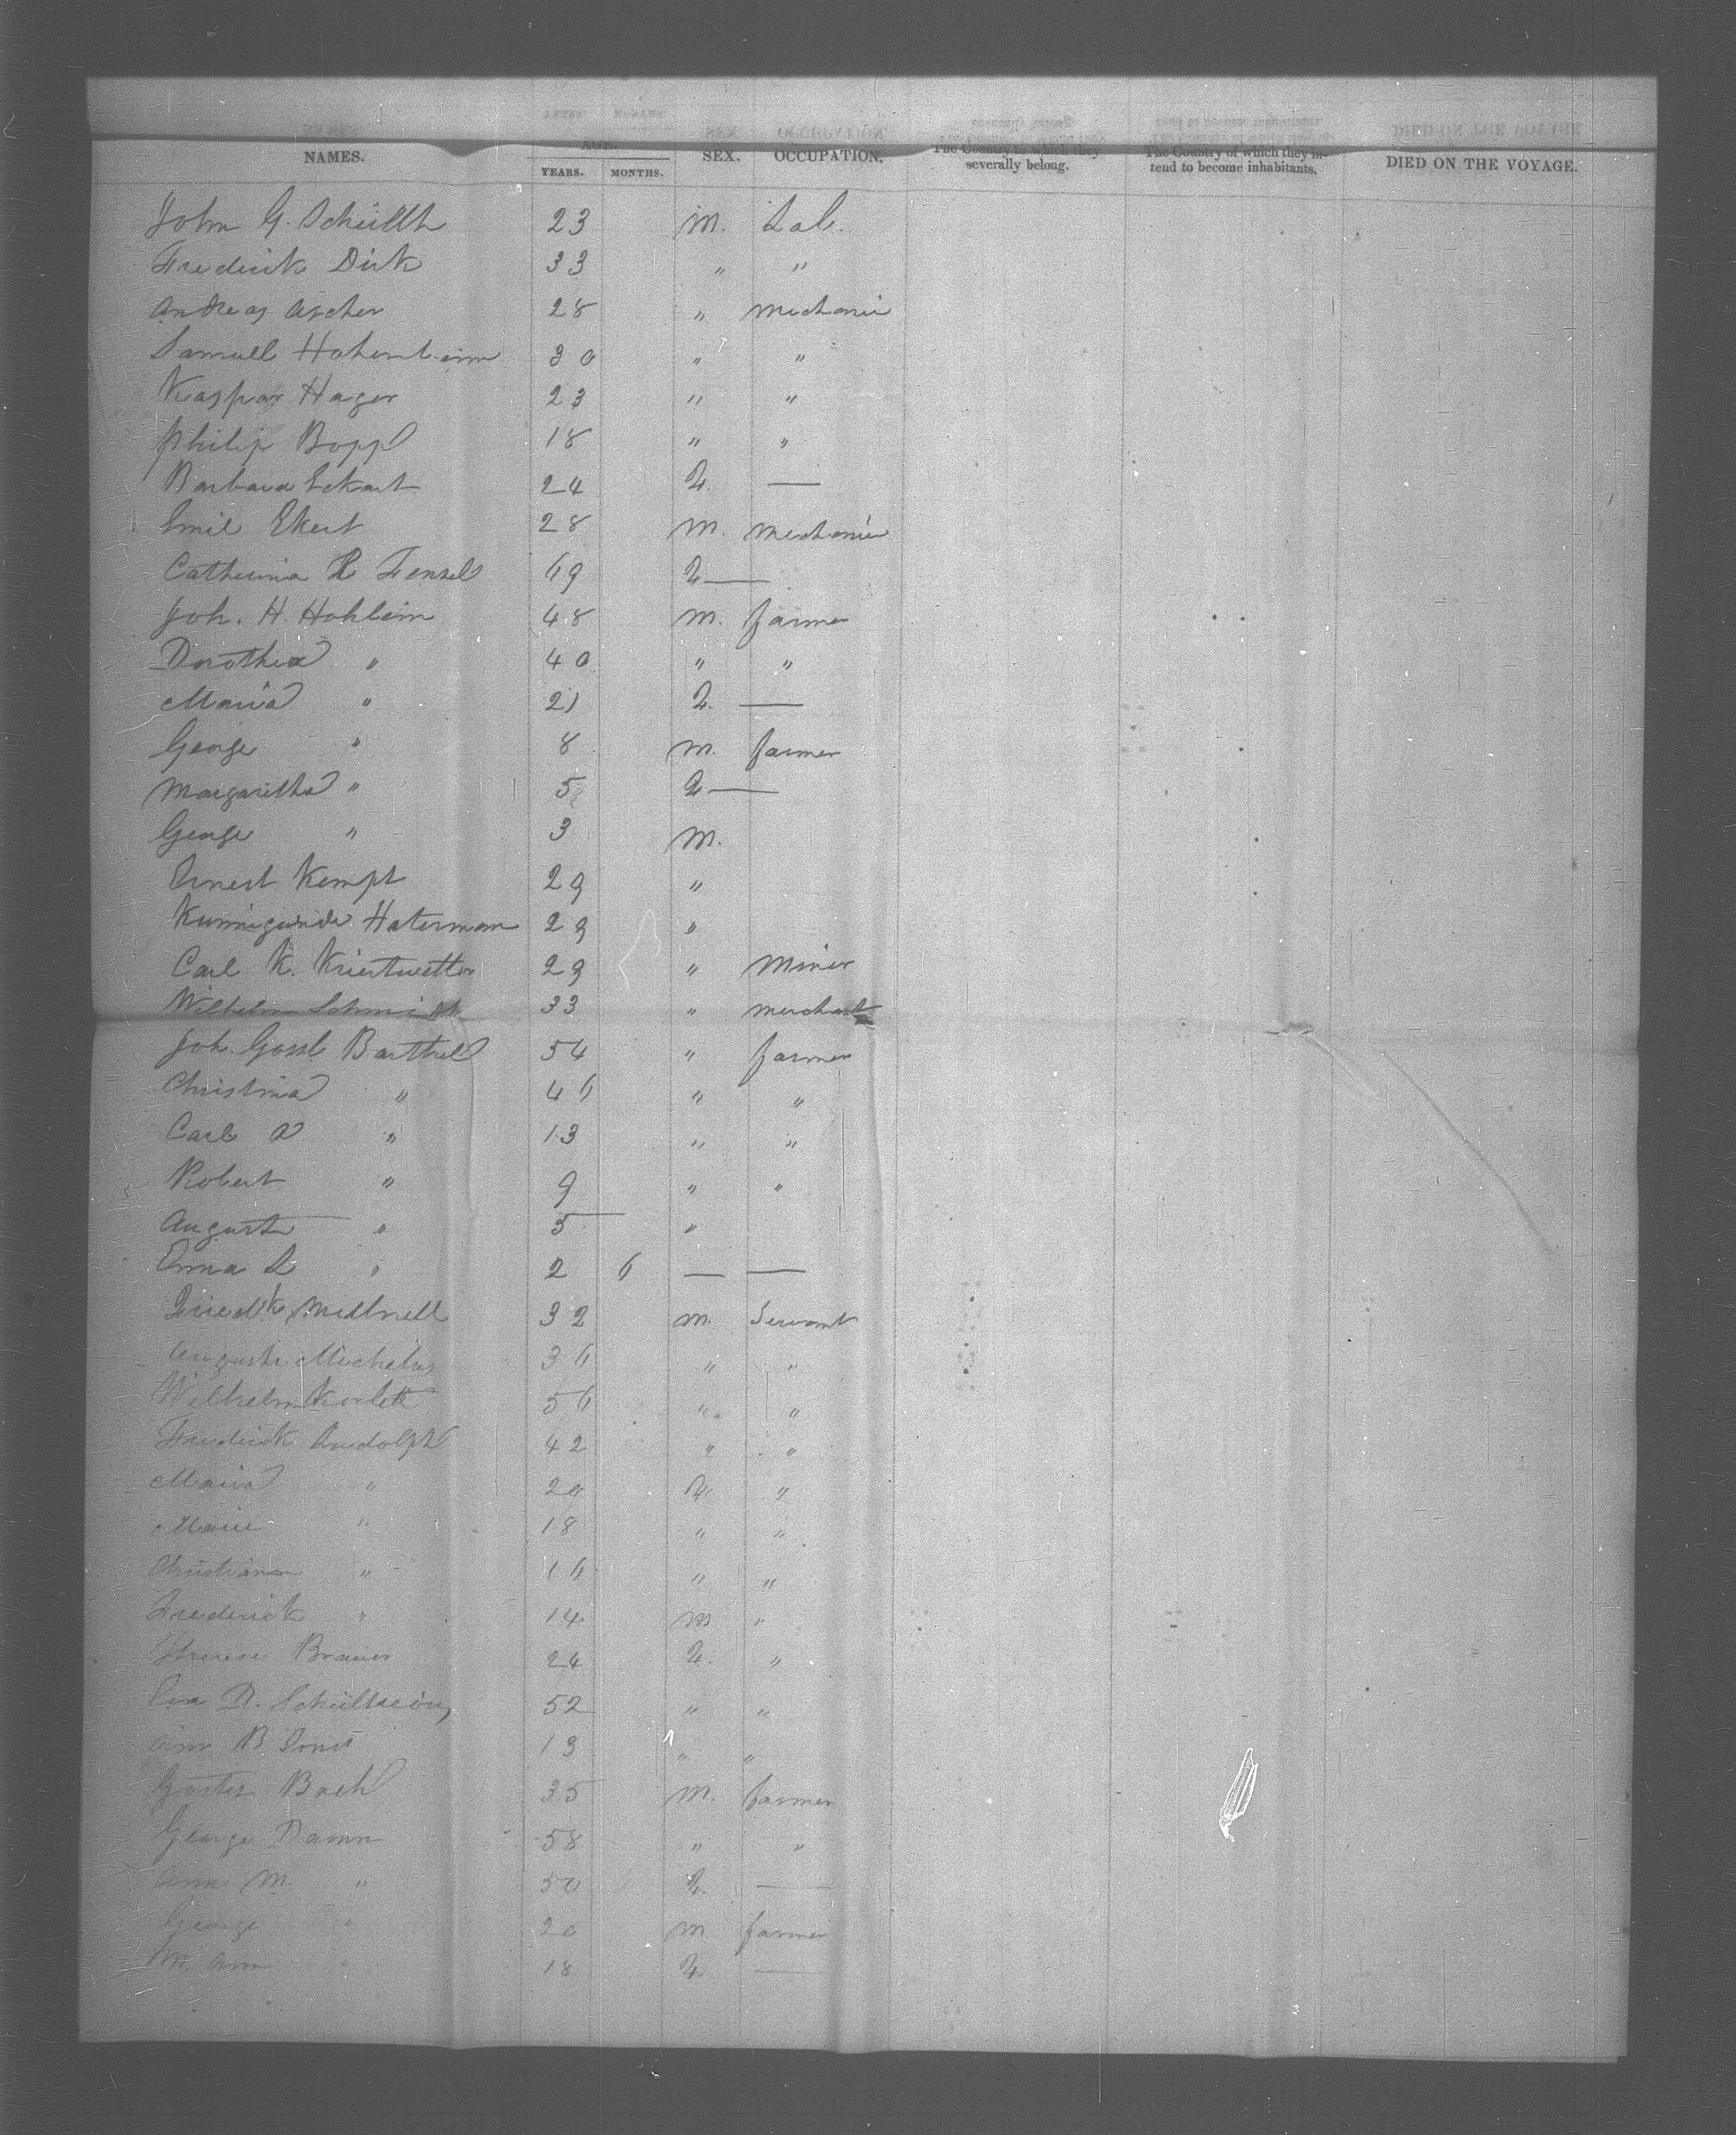 NAMES. AGE. YEARS. MONTHS. SEX. OCCUPATION. The Country to which they severally belong. The Country of which they intend to become inhabitants. DIED ON THE VOYAGE.
John G. Schüllth 23 M. Lab.
Frederick Dirk 33 " "
Andreas Ascher 28 " mechanic
Samuell 30 " "
Kaspar Hager 23 " "
Philip Bopp 18 " "
Barbara Eckart 24 F. —
Emil Ekert 28 M. mechanic
Catherina Fensel 69 F —
Joh. H. Hohlein 48 M. farmer
Dorothea " 40 " "
Maria " 21 F. —
George " 8 M. farmer
Margaretha " 5 F —
George " 3 M.
Ernest Kempt 29 "
Kunnigunde Haterman 29 "
Carl K. 29 " Miner
Wilhelm Schmidt 33 " merchant
Joh. Gottl Barthel 54 " farmer
Christina " 46 " "
Carl A " 13 " "
Robert " 9 " "
August " 5 "
Emma L " 2 6 — —
Fried'k 32 M. Servant
Auguste Michelus 36 " "
Wilhelm 56 " "
Frederick Rudolph 42 " "
Maria " 20 F. "
Marie " 18 " "
Christiana " 16 " "
Frederick " 14 M "
Therese Brauer 24 F. "
Eva 52 " "
Ann B 13 " "
Bach 35 M. farmer
George Damn 58 " "
Ann M. " 50 F. —
George " 20 M. farmer
M. Ann " 18 F. —